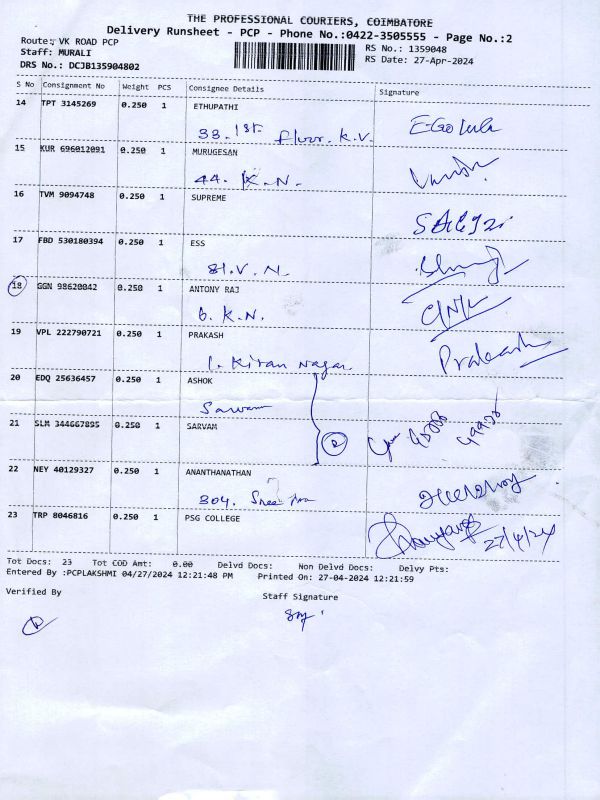 THE PROFESSIONAL COURIERS, COIMBATORE
Delivery Runsheet - PCP - Phone No.:0422-3505555 - Page No.:2
Route: VK ROAD PCP
Staff: MURALI
DRS No.: DCJB135904802
RS No.: 1359048
RS Date: 27-Apr-2024
S No Consignment No Weight PCS Consignee Details Signature
14 TPT 3145269 0.250 1 ETHUPATHI
33. 1st floor. K.V.
15 KUR 696012091 0.250 1 MURUGESAN
44. K.N.
16 TVM 9094748 0.250 1 SUPREME
17 FBD 530180394 0.250 1 ESS
81. V. N.
18 GGN 98620042 0.250 1 ANTONY RAJ
6. K.N.
19 VPL 222790721 0.250 1 PRAKASH
1. Kiran Nagar
Prakash
20 EDQ 25636457 0.250 1 ASHOK
21 SLM 344667895 0.250 1 SARVAM
22 NEY 40129327 0.250 1 ANANTHANATHAN
304. Sree
23 TRP 8046816 0.250 1 PSG COLLEGE
27/4/24
Tot Docs: 23 Tot COD Amt: 0.00 Delvd Docs: Non Delvd Docs: Delvy Pts:
Entered By :PCPLAKSHMI 04/27/2024 12:21:48 PM Printed On: 27-04-2024 12:21:59
Verified By
Staff Signature